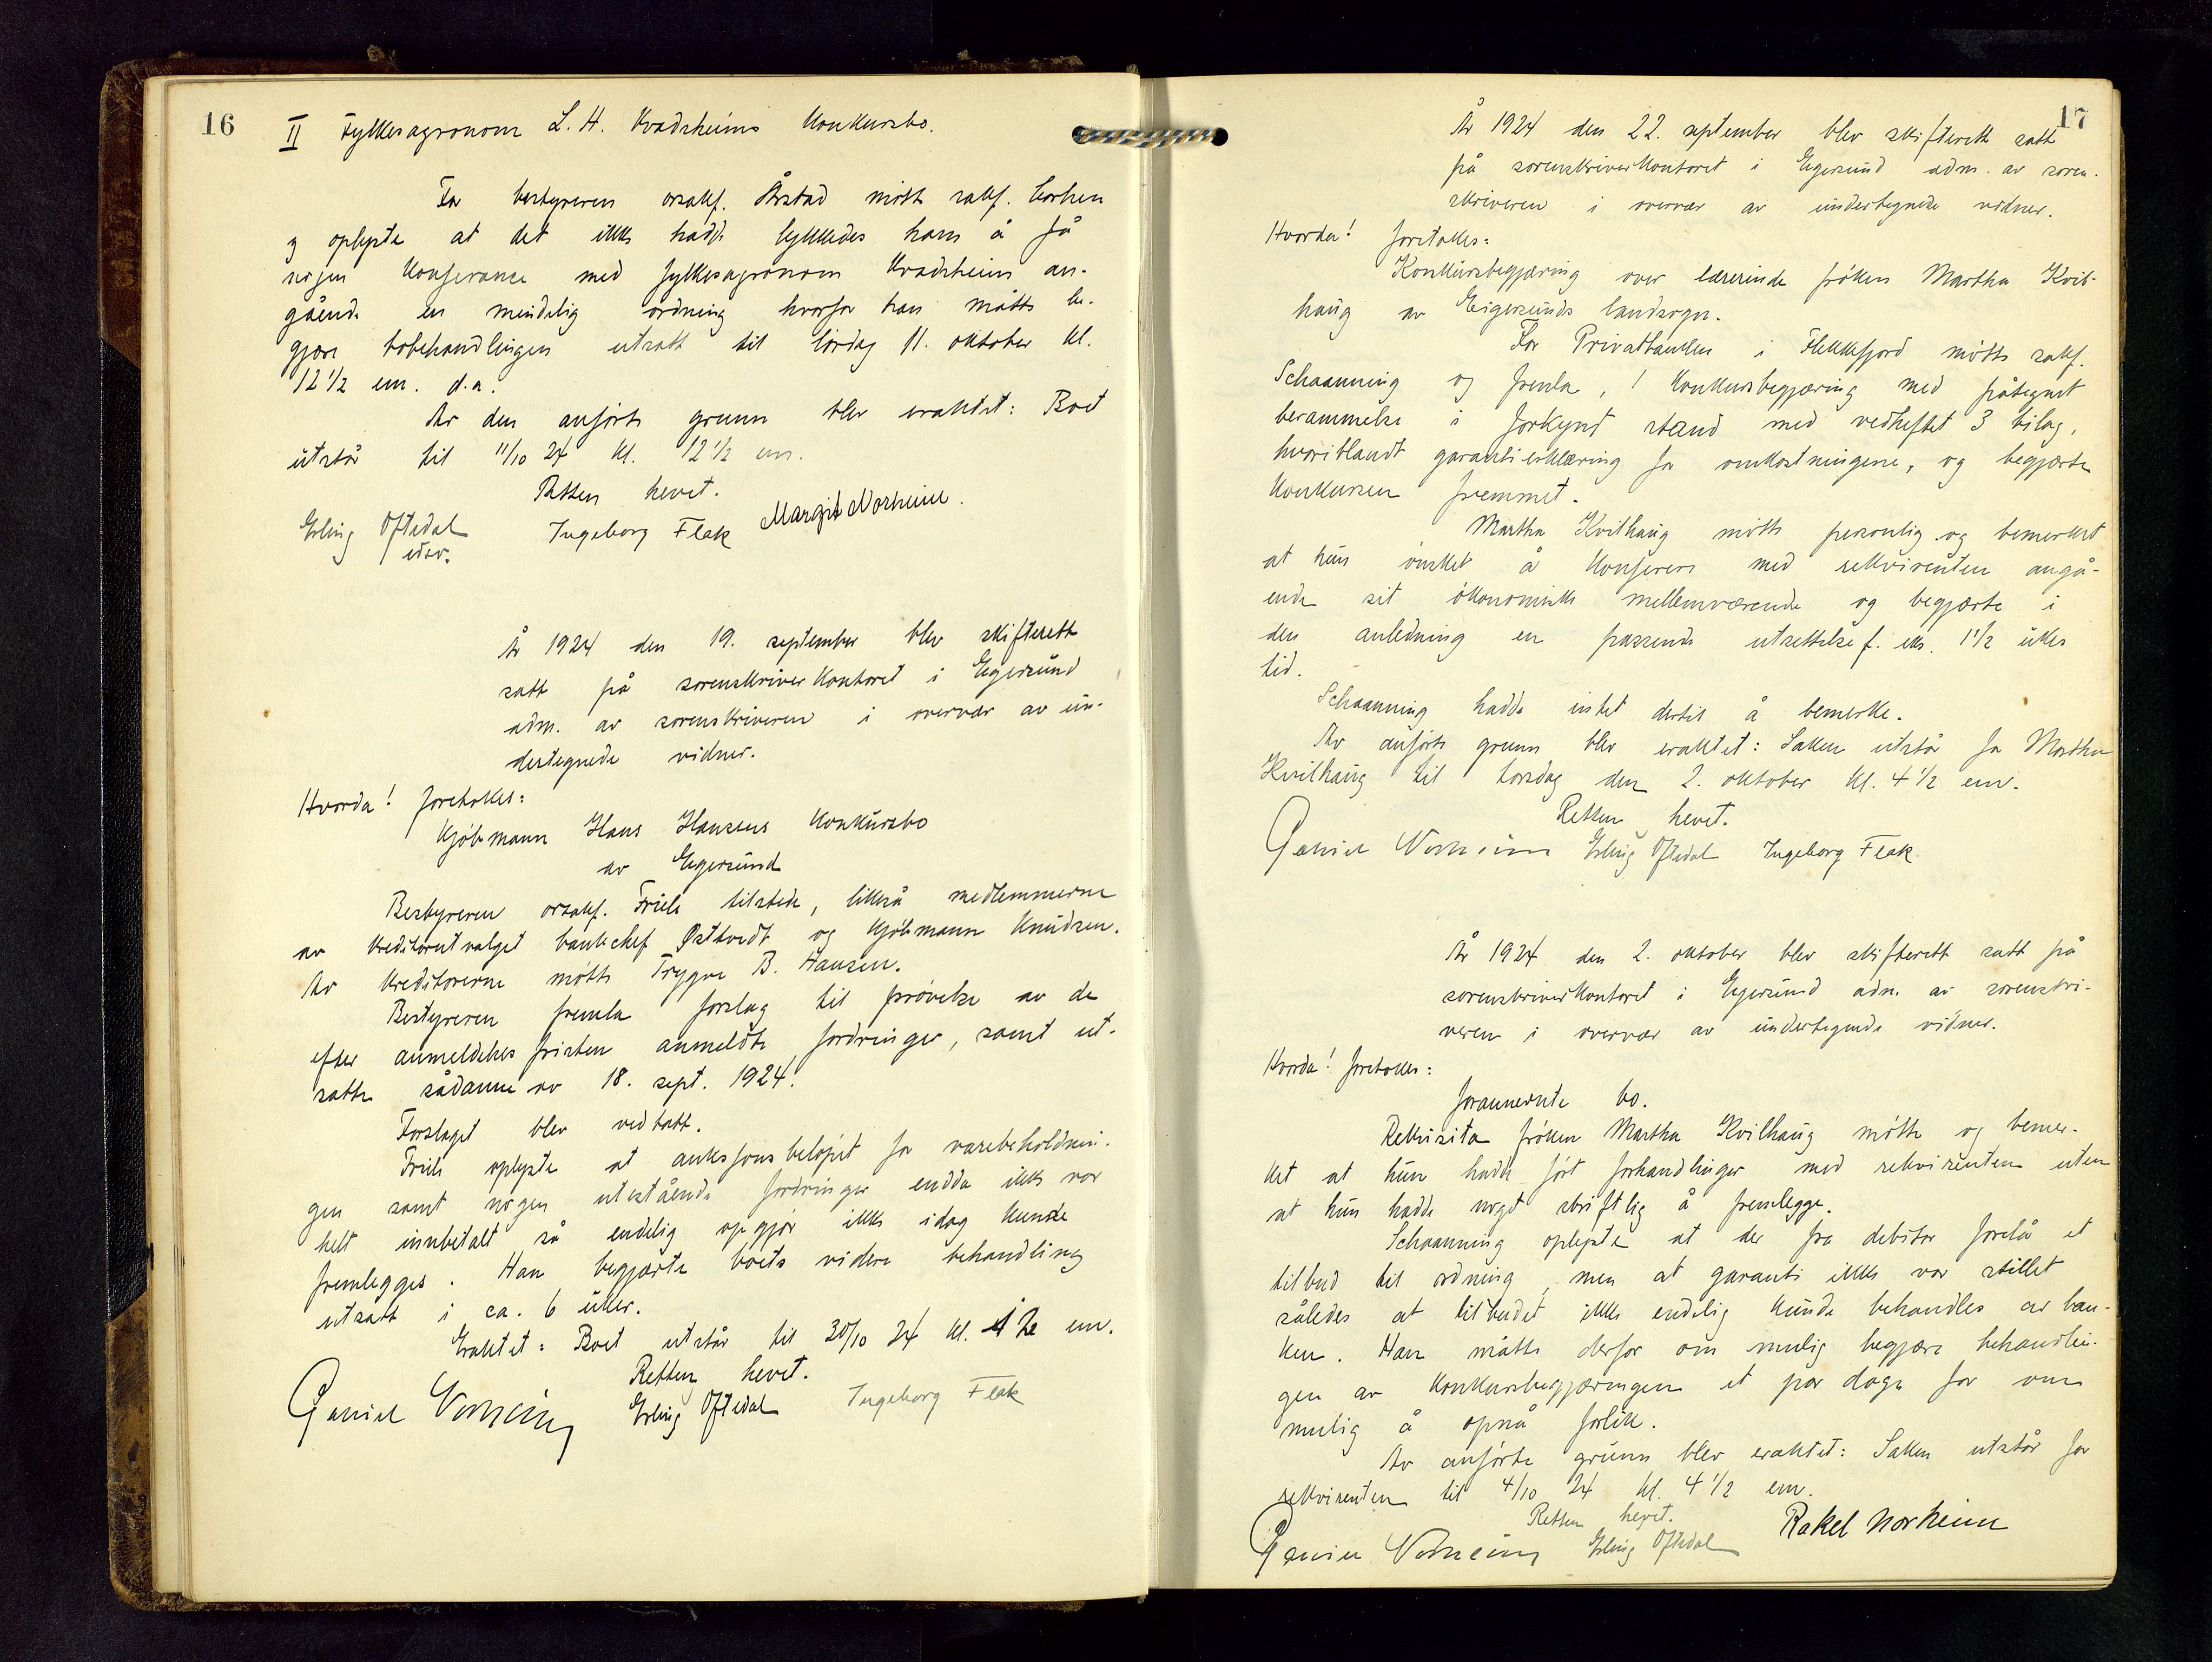 16
II Fylkesagronom L. H. Kvadsheims konkursbo.
For bestyreren orsakf. Årstad møtte sakf.
og oplyste at det ikke hadde lykkedes ham å få
nogen konferance med fylkesagronom Kvadsheim an-
gående en mindelig ordning hvorfor han måtte be-
gjære bobehandlingen utsatt til lørdag 11. oktober kl.
12 1/2 em. d.a.
Av den anførte grunn blev eraktet: Boet
utstår til 11/10 24 kl. 12 1/2 em.
Retten hevet.
Erling Oftedal Ingeborg Fleck Margit Norheim.
edsv.
År 1924 den 19. september blev skifterett
satt på sorenskriverkontoret i Egersund
adm. av sorenskriveren i overvær av un-
dertegnede vidner.
Hvorda! foretokes:
Kjøbmann Hans Hansens konkursbo
av Egersund
Bestyreren orsakf. Friele tilstede, likeså medlemmerne
av kreditorutvalget bankchef Østhvedt og kjøbmann Knudsen.
Av kreditorerne møtte Trygve B. Hansen.
Bestyreren fremla forslag til prøvelse av de
efter anmeldelsesfristen anmeldte fordringer, samt ut-
satte sådanne av 18. sept. 1924.
Forslaget blev vedtatt.
Friele oplyste at auksjonsbeløpet for varebeholdnin-
gen samt nogen utestående fordringer endda ikke var
helt innbetalt så endelig opgjør ikke idag kunde
fremlegges. Han begjærte boets videre behandling
utsatt i ca. 6 uker.
Eraktet: Boet utstår til 30/10 24 kl. 12 em.
Retten hevet.
Daniel Norheim Erling Oftedal Ingeborg Fleck
17
År 1924 den 22. september blev skifterett satt
på sorenskriverkontoret i Egersund adm. av soren-
skriveren i overvær av undertegnede vidner.
Hvorda! foretokes:
Konkursbegjæring over lærerinde frøken Martha Kvil-
haug av Eigersunds landsogn.
For Privatbanken i Flekkefjord møtte sakf.
Schaanning og fremla, 1 konkursbegjæring med påtegnet
berammelse i forkynt stand med vedheftet 3 bilag,
hvoriblandt garantierklæring for omkostningene, og begjærte
konkursen fremmet.
Martha Kvilhaug møtte personlig og bemerket
at hun ønsket å konferere med rekvirenten angå-
ende sit økonomiske mellemværende og begjærte i
den anledning en passende utsettelse f. eks. 1 1/2 ukes
tid.
Schaanning hadde intet dertil å bemerke.
Av anførte grunn blev eraktet: Saken utstår for Martha
Kvilhaug til torsdag den 2. oktober kl. 4 1/2 em.
Retten hevet.
Daniel Norheim Erling Oftedal Ingeborg Fleck
År 1924 den 2. oktober blev skifterett satt på
sorenskriverkontoret i Egersund adm. av sorenskri-
veren i overvær av undertegnede vidner.
Hvorda! foretokes:
forannevnte bo.
Rekvisita frøken Martha Kvilhaug møtte og bemer-
ket at hun hadde ført forhandlinger med rekvirenten uten
at hun hadde noget skriftlig å fremlegge.
Schaanning oplyste at der fra debitor forelå et
tilbud til ordning, men at garanti ikke var stillet
således at tilbudet ikke endelig kunde behandles av ban-
ken. Han måtte derfor om mulig begjære behandlin-
gen av konkursbegjæringen et par dage for om
mulig å opnå forlik.
Av anførte grunn blev eraktet: Saken utstår for
rekvirenten til 4/10 24 kl. 4 1/2 em.
Retten hevet.
Daniel Norheim Erling Oftedal Rakel Norheim